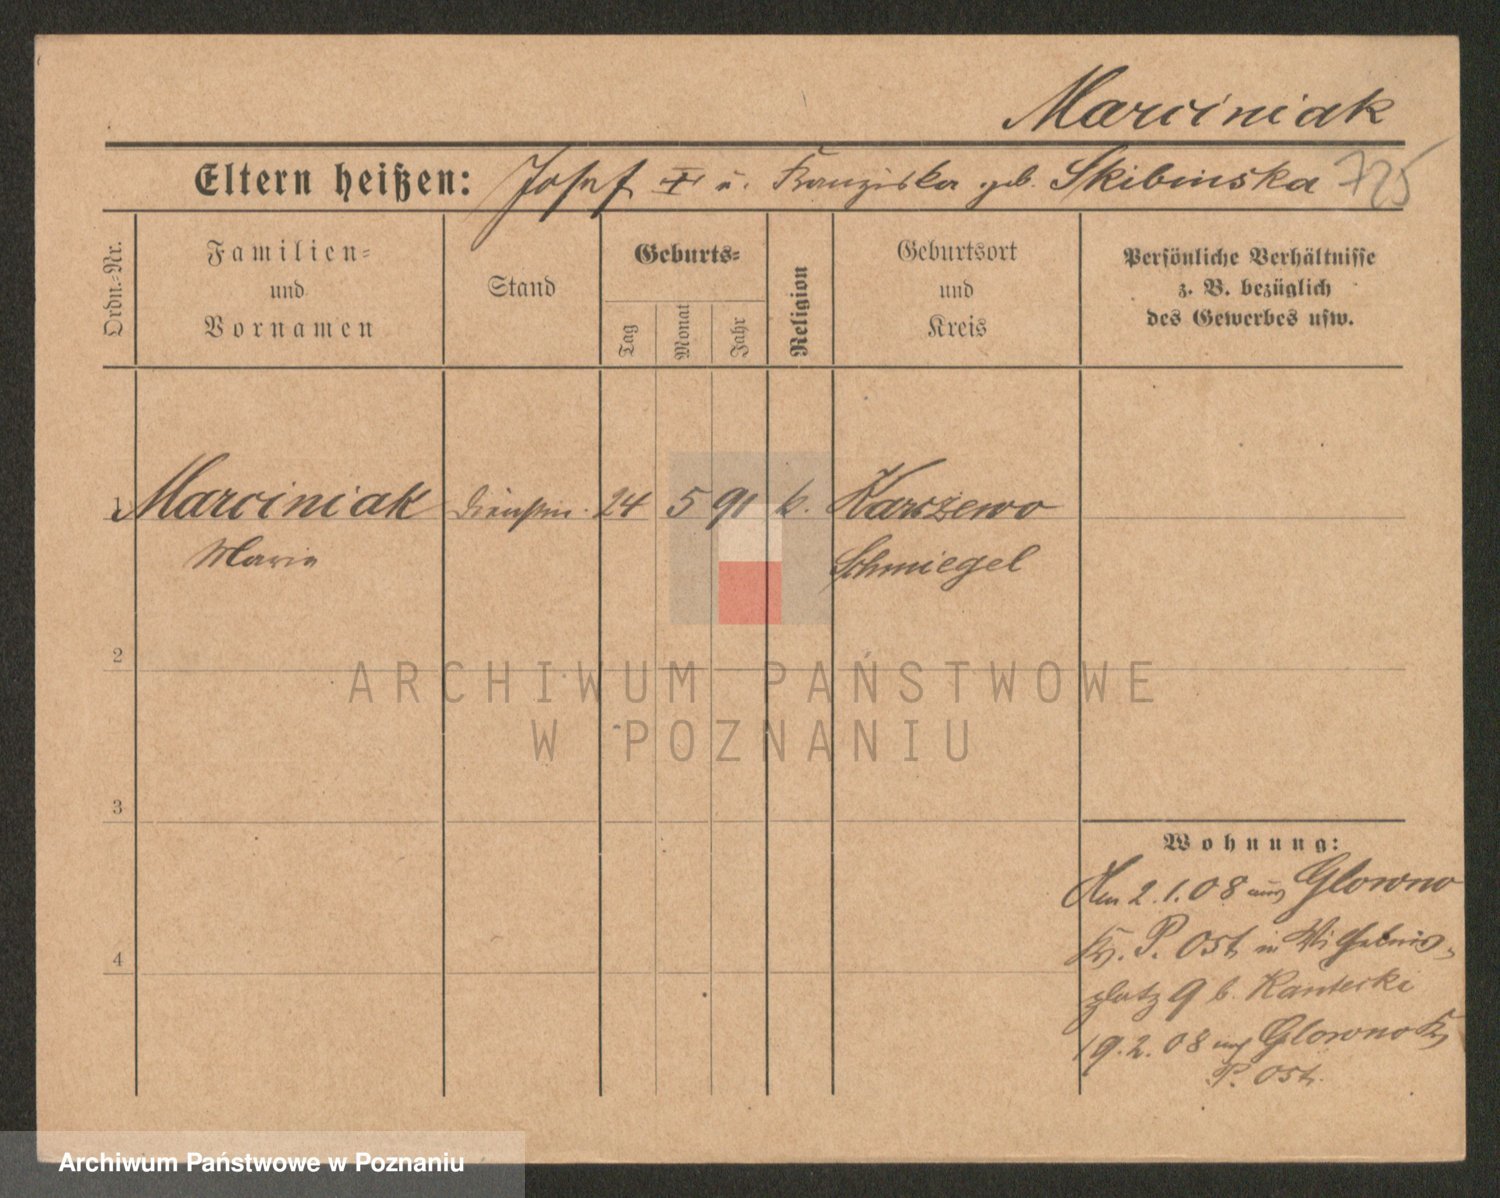 Marciniak
Eltern heißen: Josef u. Franziska geb. Skibinska 725
Ordn.-Nr.
Familien-
und
Vornamen
Stand
Geburts-
Tag
Monat
Jahr
Religion
Geburtsort
und
Kreis
Persönliche Verhältnisse
z. B. bezüglich
des Gewerbes usw.
1 Marciniak Dienstm. 24 5 91 k. Karszewo
Marie Schmiegel
2
ARCHIWUM PAŃSTWOWE
W POZNANIU
3
Wohnung:
Am 2.1.08 aus Glowno
Kr. P. Ost in Wilhelms-
platz 9 b. Kantecki
19.2.08 nach Glowno Kr.
P. Ost.
4
Archiwum Państwowe w Poznaniu